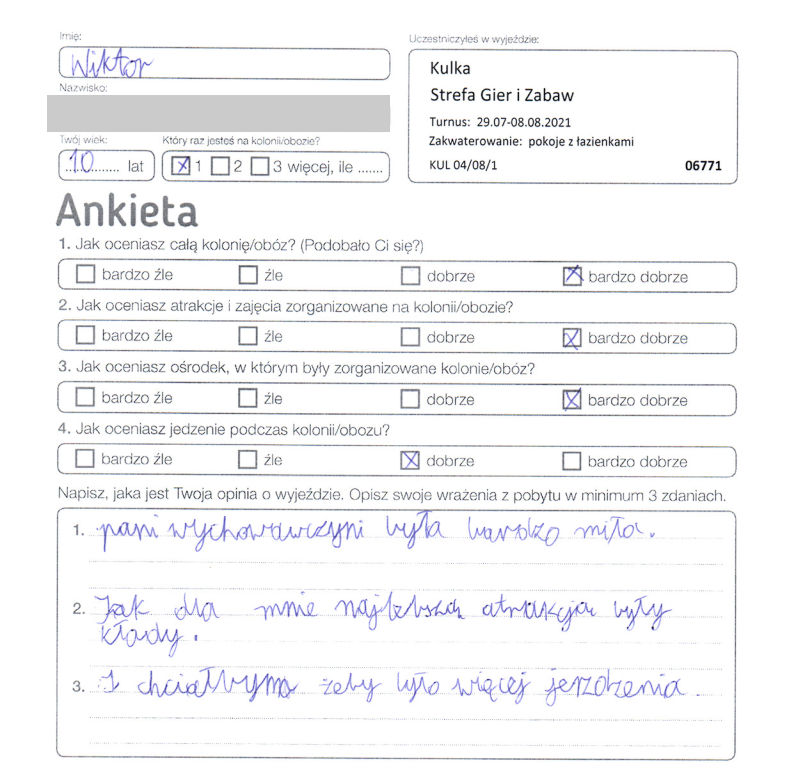 Imię:
Wiktor
Nazwisko:
Twój wiek:
10 lat
Który raz jesteś na kolonii/obozie?
1 2 3 więcej, ile .......
Uczestniczyłeś w wyjeździe:
Kulka
Strefa Gier i Zabaw
Turnus: 29.07-08.08.2021
Zakwaterowanie: pokoje z łazienkami
KUL 04/08/1 06771
Ankieta
1. Jak oceniasz całą kolonię/obóz? (Podobało Ci się?)
bardzo źle źle dobrze bardzo dobrze
2. Jak oceniasz atrakcje i zajęcia zorganizowane na kolonii/obozie?
bardzo źle źle dobrze bardzo dobrze
3. Jak oceniasz ośrodek, w którym były zorganizowane kolonie/obóz?
bardzo źle źle dobrze bardzo dobrze
4. Jak oceniasz jedzenie podczas kolonii/obozu?
bardzo źle źle dobrze bardzo dobrze
Napisz, jaka jest Twoja opinia o wyjeździe. Opisz swoje wrażenia z pobytu w minimum 3 zdaniach.
1. pani wychowawczyni była bardzo miła.
2. Jak dla mnie najlebszą atrakcją były
kłady.
3. I chciałbym żeby było więcej jerzdzenia.